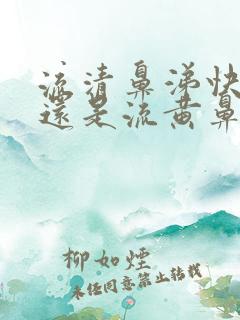 流清鼻涕快
還是流黄鼻
柳如煙
未经同意禁止转载